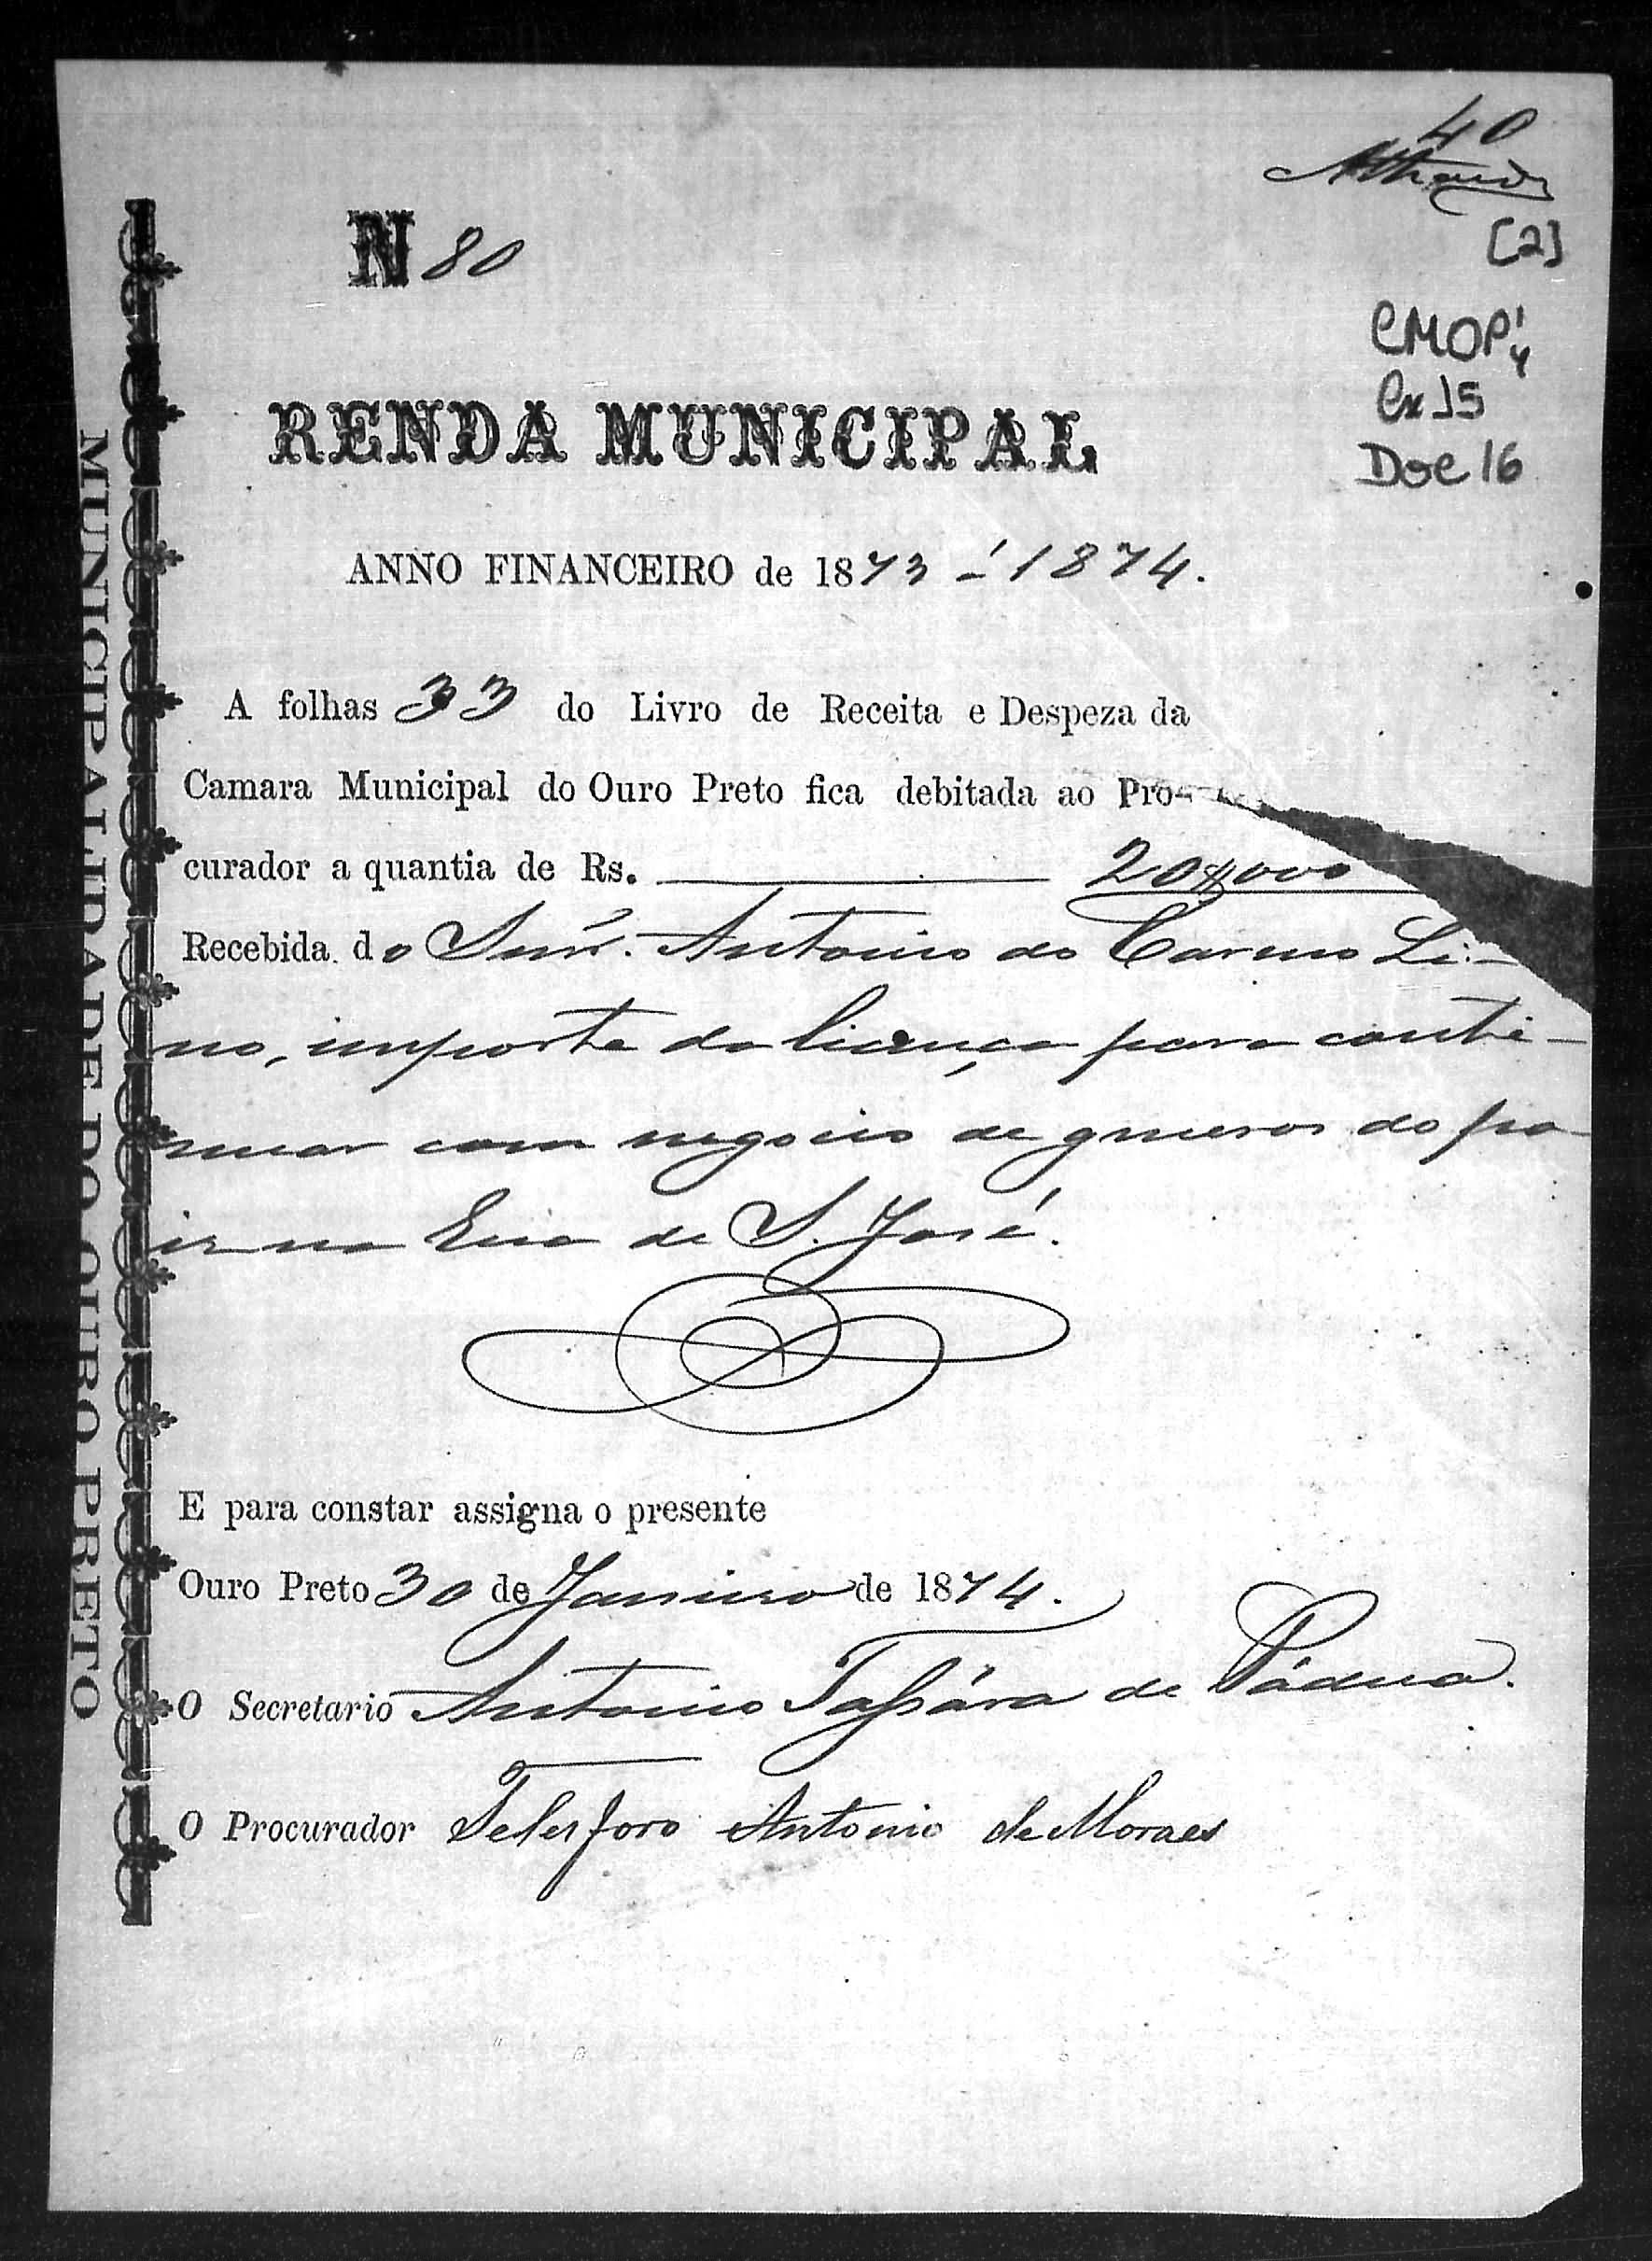 40
[2]
CMOP
Cx 15
Doc 16
N 80
RENDA MUNICIPAL
ANNO FINANCEIRO de 1873 - 1874.
A folhas 33 do Livro de Receita e Despeza da
Camara Municipal do Ouro Preto fica debitada ao Pro-
curador a quantia de Rs. 20$000
Recebida do Snr. Antonio do Carmo Li-
no, importe da licença para conti-
nuar com negocio de generos do pa
iz na Rua de S. José.
E para constar assigna o presente
Ouro Preto 30 de Janeiro de 1874.
O Secretario Antonio Tassára de Pádua.
O Procurador Telesforo Antonio de Moraes
MUNICIPALIDADE DO OURO PRETO